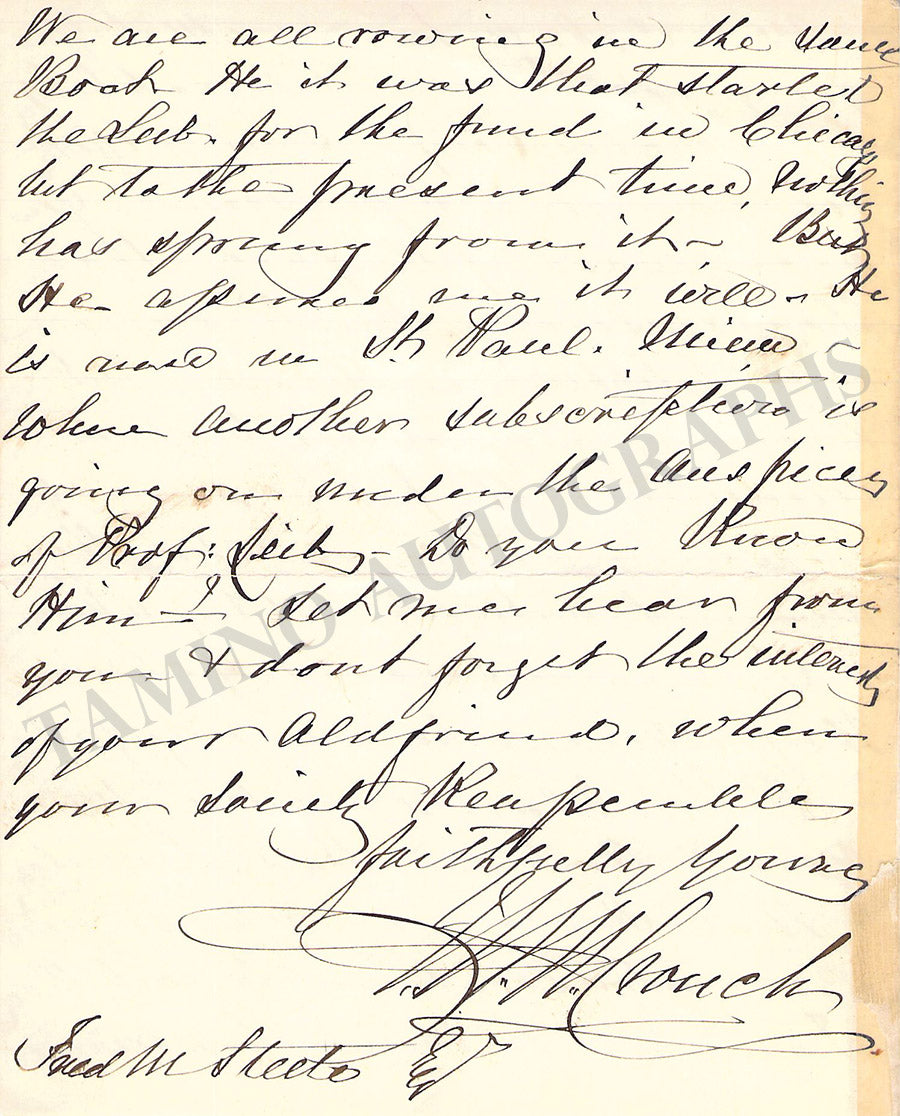 We are all rowing in the same
Boat. He it was that started
the Sub. for the fund in Chicago
but to the present time, nothing
has sprung from it - But
He assures me it will - He
is now in St Paul. Minn -
where another subscription is
going on under the auspices
of Prof: Seib - Do you Know
Him -? Let me hear from
you & dont forget the interests
of your Old friend, when
your Society Reassembles
faithfully Yours
F. N. Crouch
Fred M Steele Esq
TAMINO AUTOGRAPHS